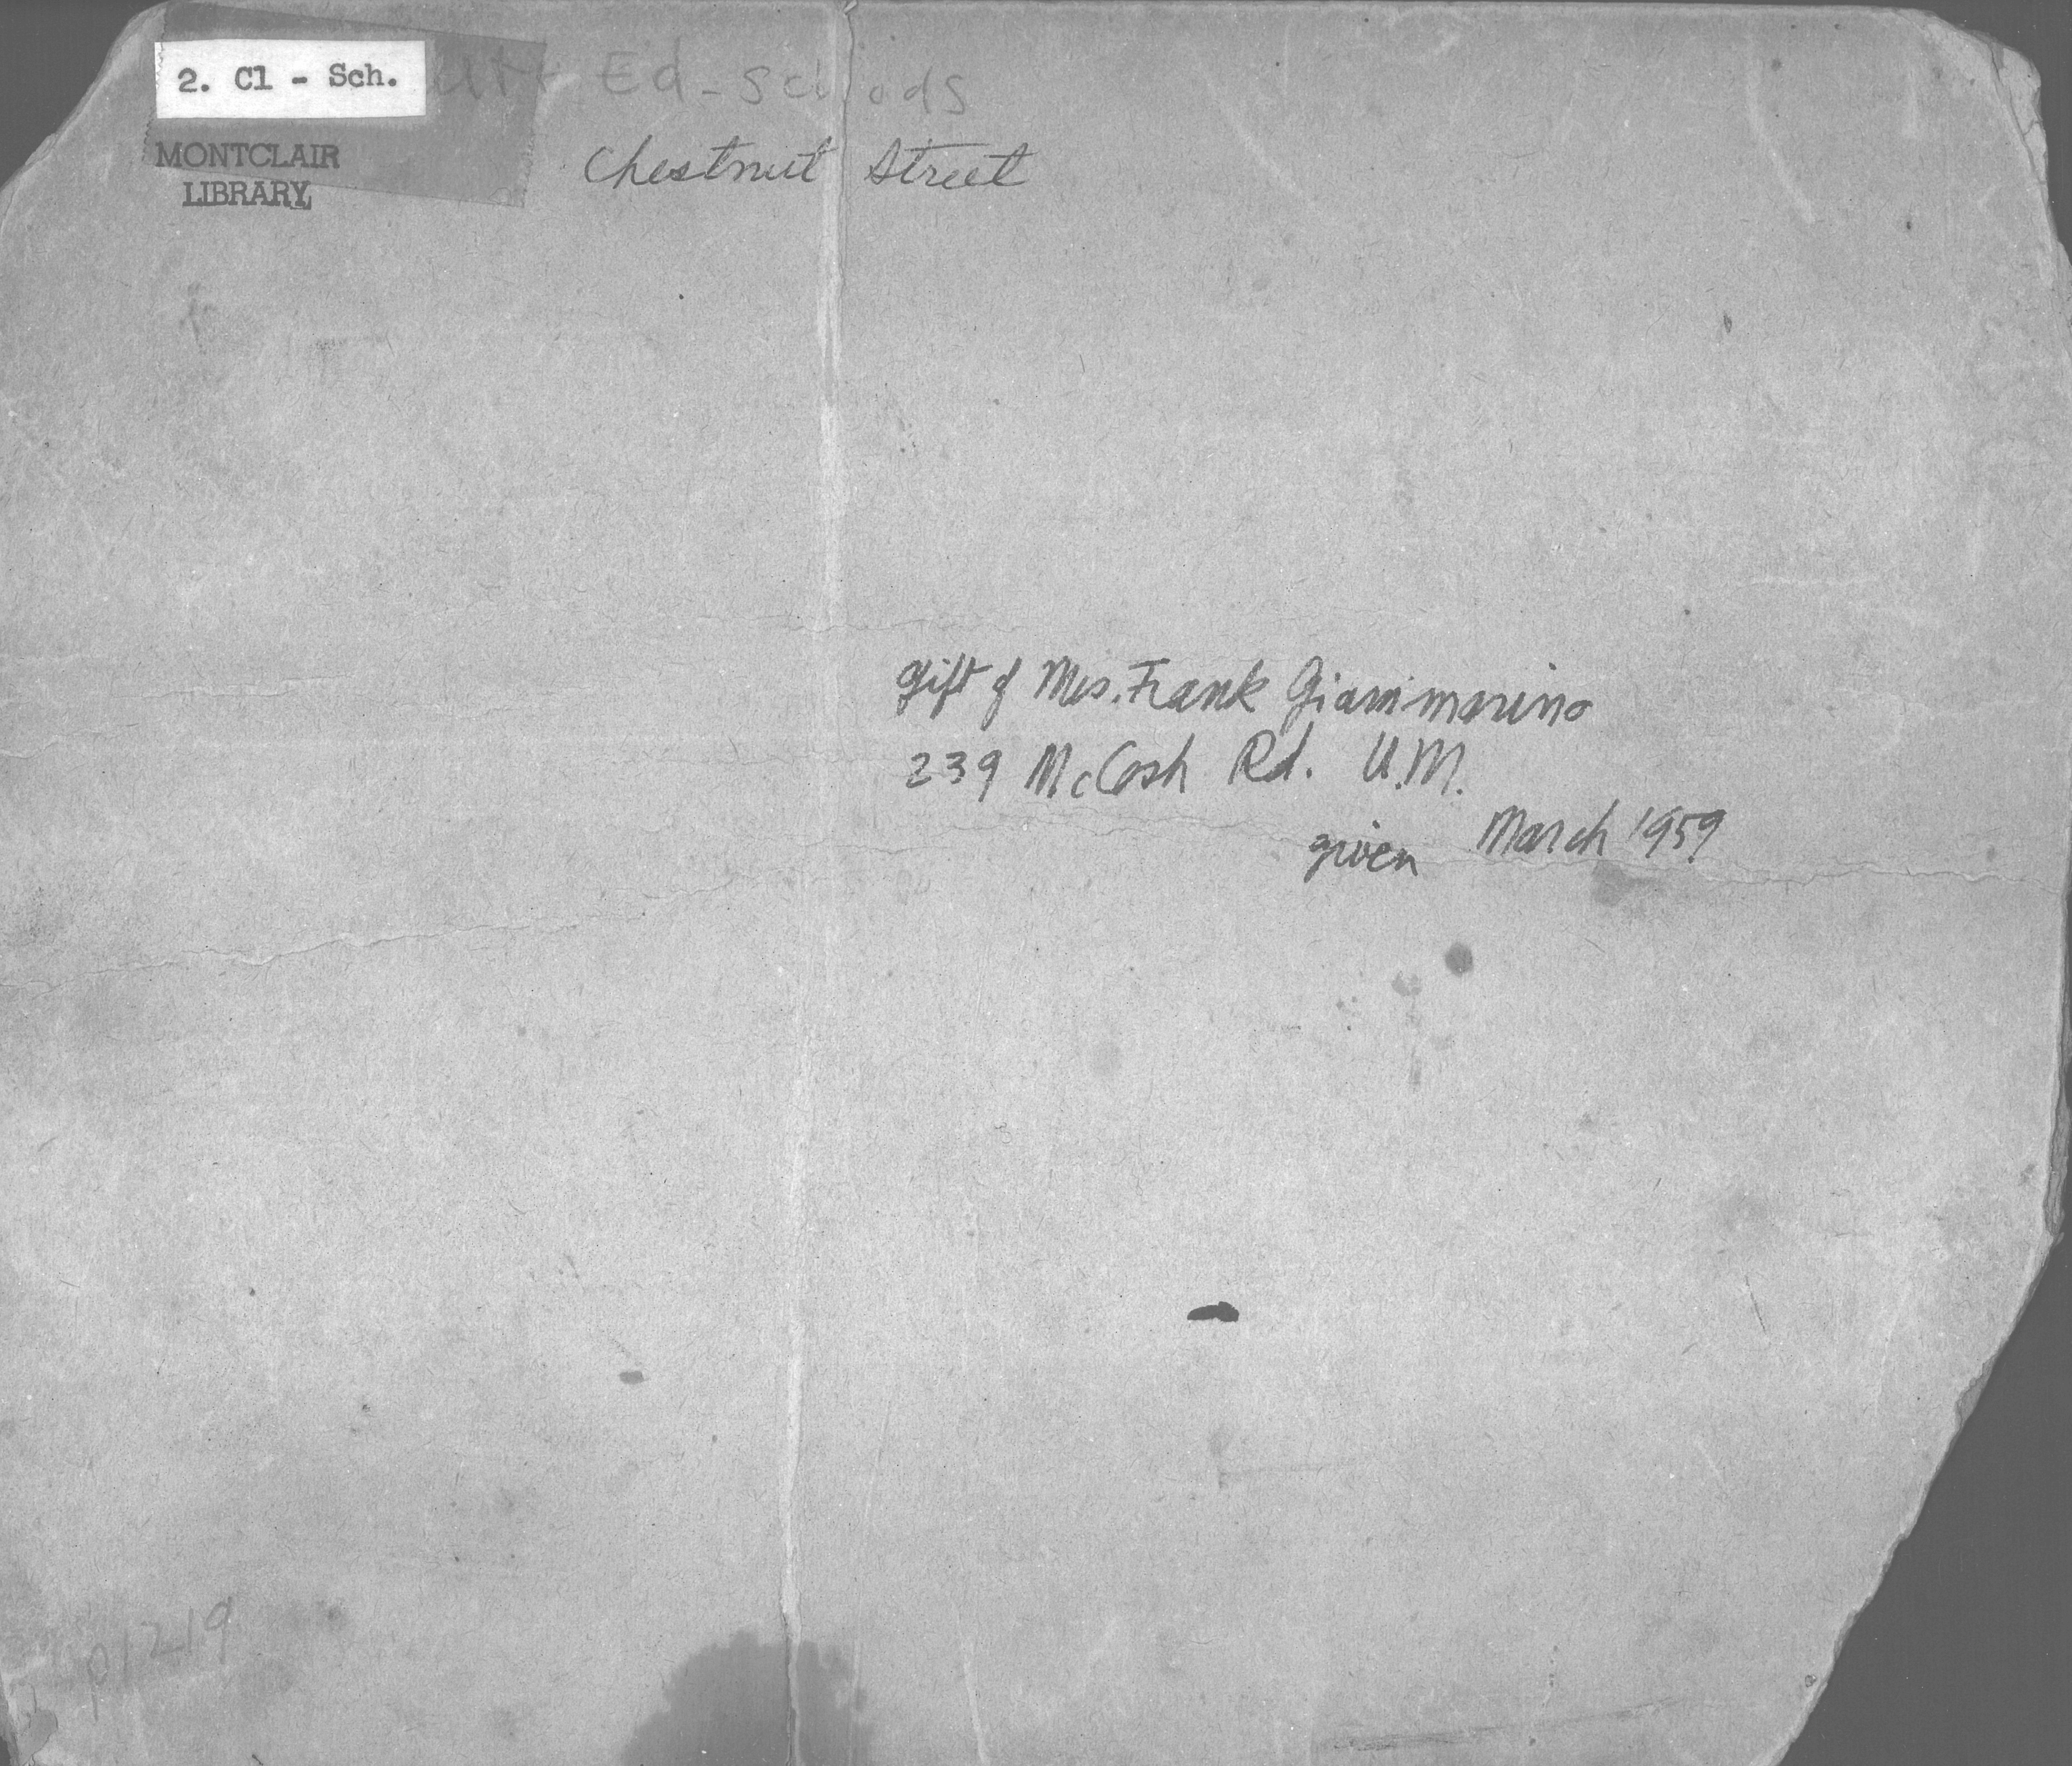 2. Cl - Sch.
Ed - Schools
MONTCLAIR
LIBRARY
Chestnut Street
gift of Mrs. Frank Giammarino
239 McCosh Rd. U.M.
given March 1959
p1219